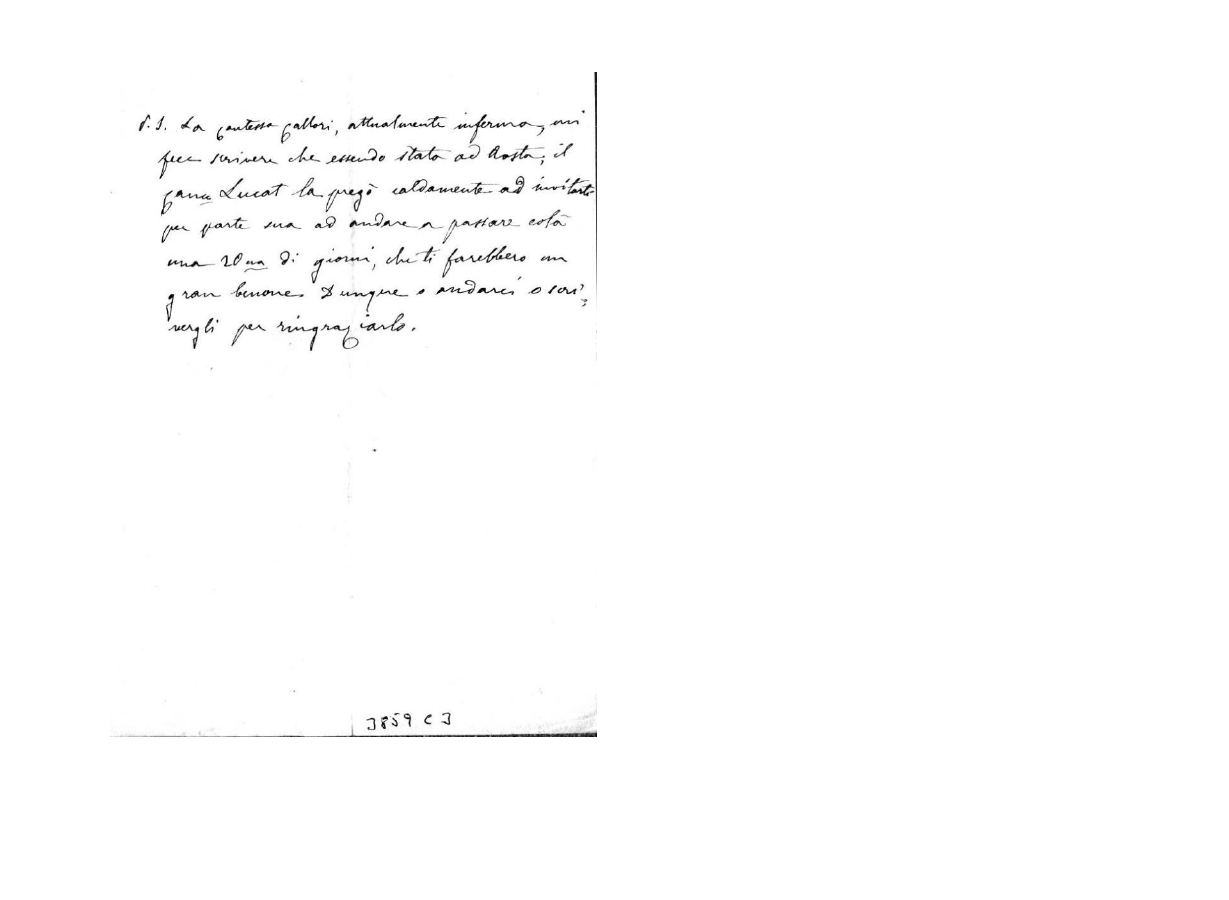 P. S. La Contessa Callori, attualmente inferma, mi
fece scrivere che essendo stata ad Aosta, il
Can.co Lucat la pregò caldamente ad invitarti
per parte sua ad andare a passare colà
una 20na di giorni, che ti farebbero un
gran benone. Dunque o andarci o scri
vergli per ringraziarlo.
3859 C 3